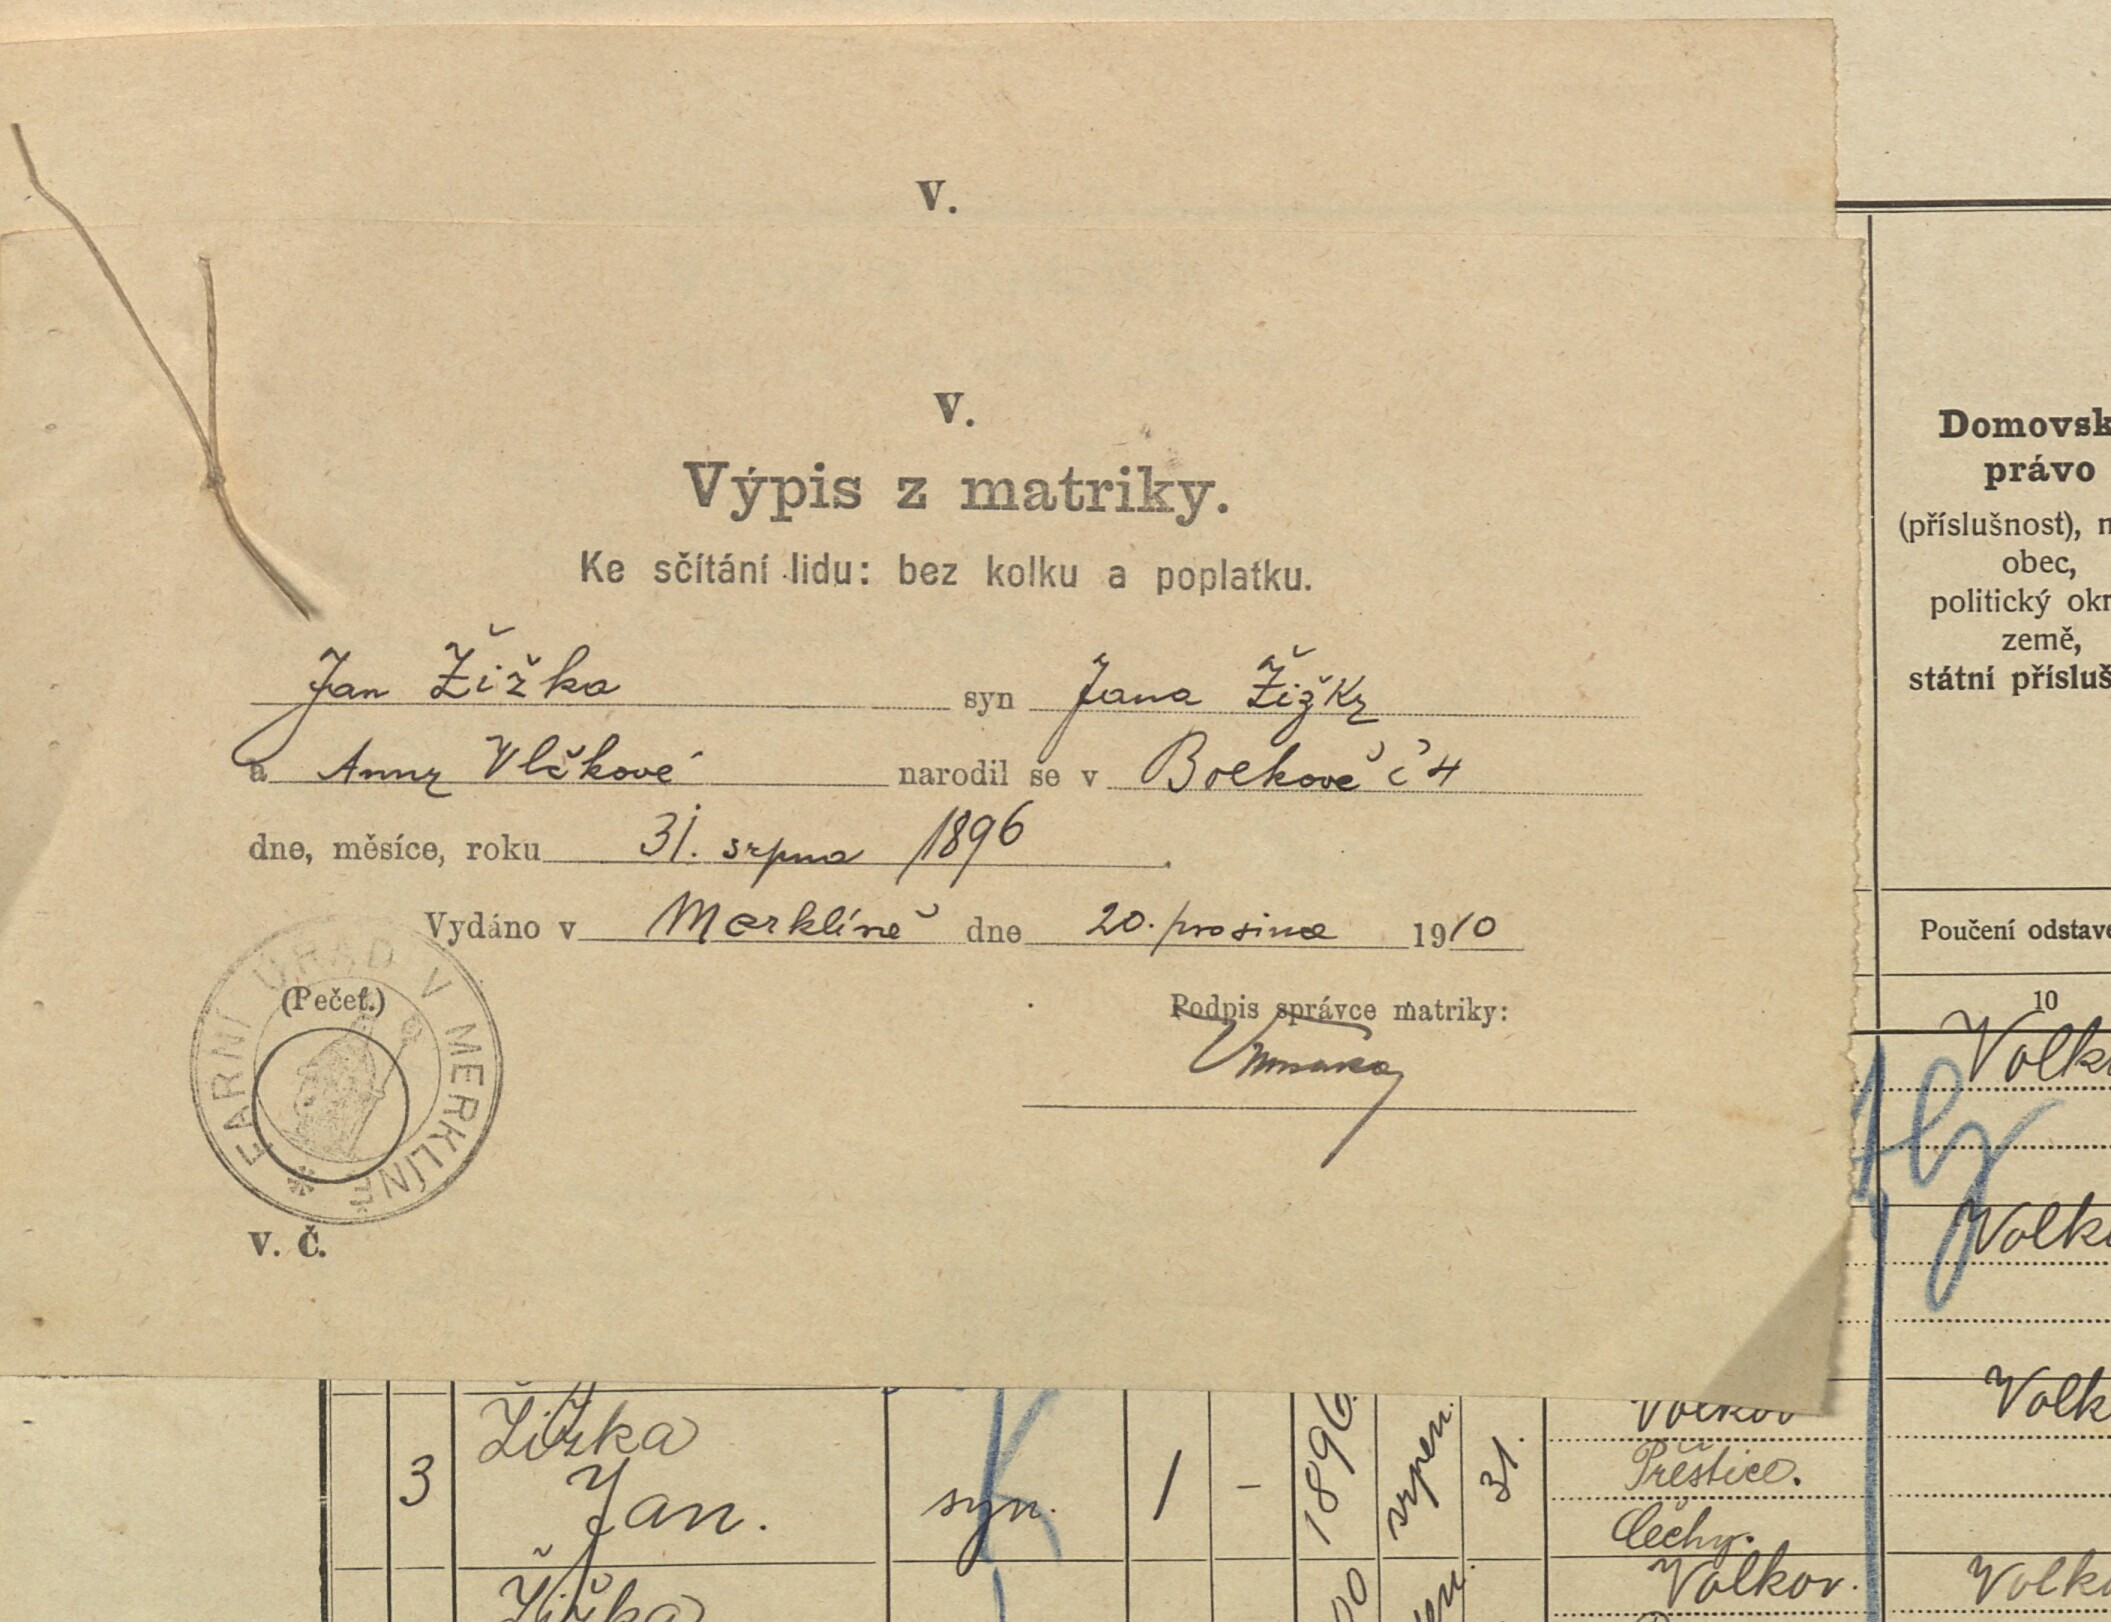 V.
V.
Výpis z matriky.
Ke sčítání lidu: bez kolku a poplatku.
Jan Žižka syn Jana Žižky
a Anny Vlčkové narodil se v Bolkově č 4
dne, měsíce, roku 31. srpna 1896
Vydáno v Merklíně dne 20. prosince 1910
(Pečeť.)
Podpis správce matriky:
FARNÍ ÚŘAD V MERKLÍNĚ
V. Č.
Domovsk
právo
(příslušnost), m
obec,
politický okr
země,
státní přísluš
Poučení odstave
10
Volk
Volk
Volk
3 Žižka Jan. syn. 1 - 1896. srpen. 31. Volkov
Přeštice.
Čechy.
Žižka Volkov. Volk